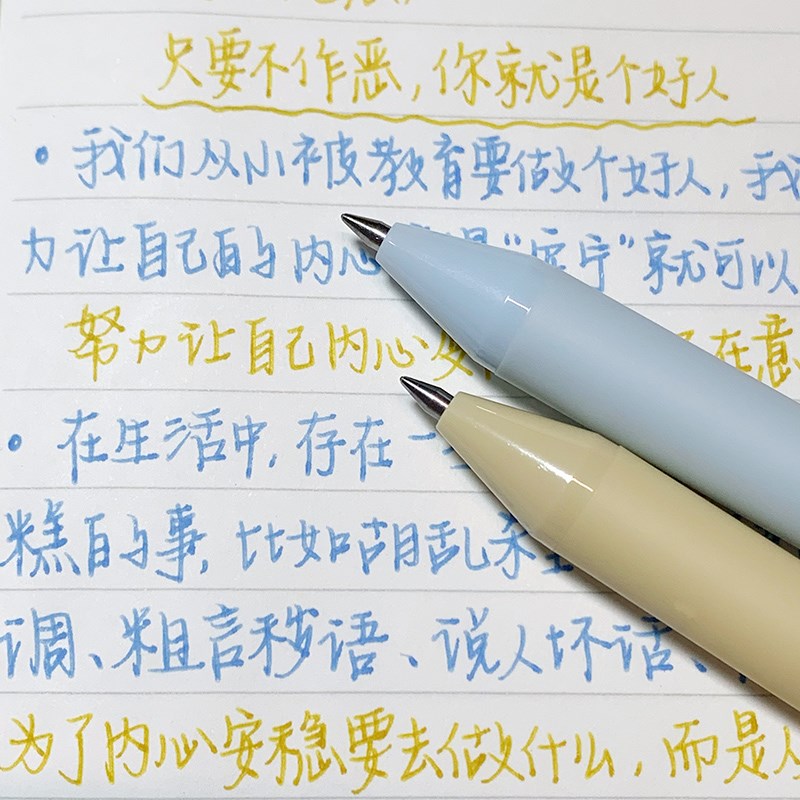 只要不作恶,你就是个好人
• 我们从小被教育要做个好人,我
力让自己的内心 是"安宁"就可以
努力让自己内心安 在意
• 在生活中,存在一
糕的事,比如胡乱杀
调、粗言秽语、说人坏话、
为了内心安稳要去做什么,而是